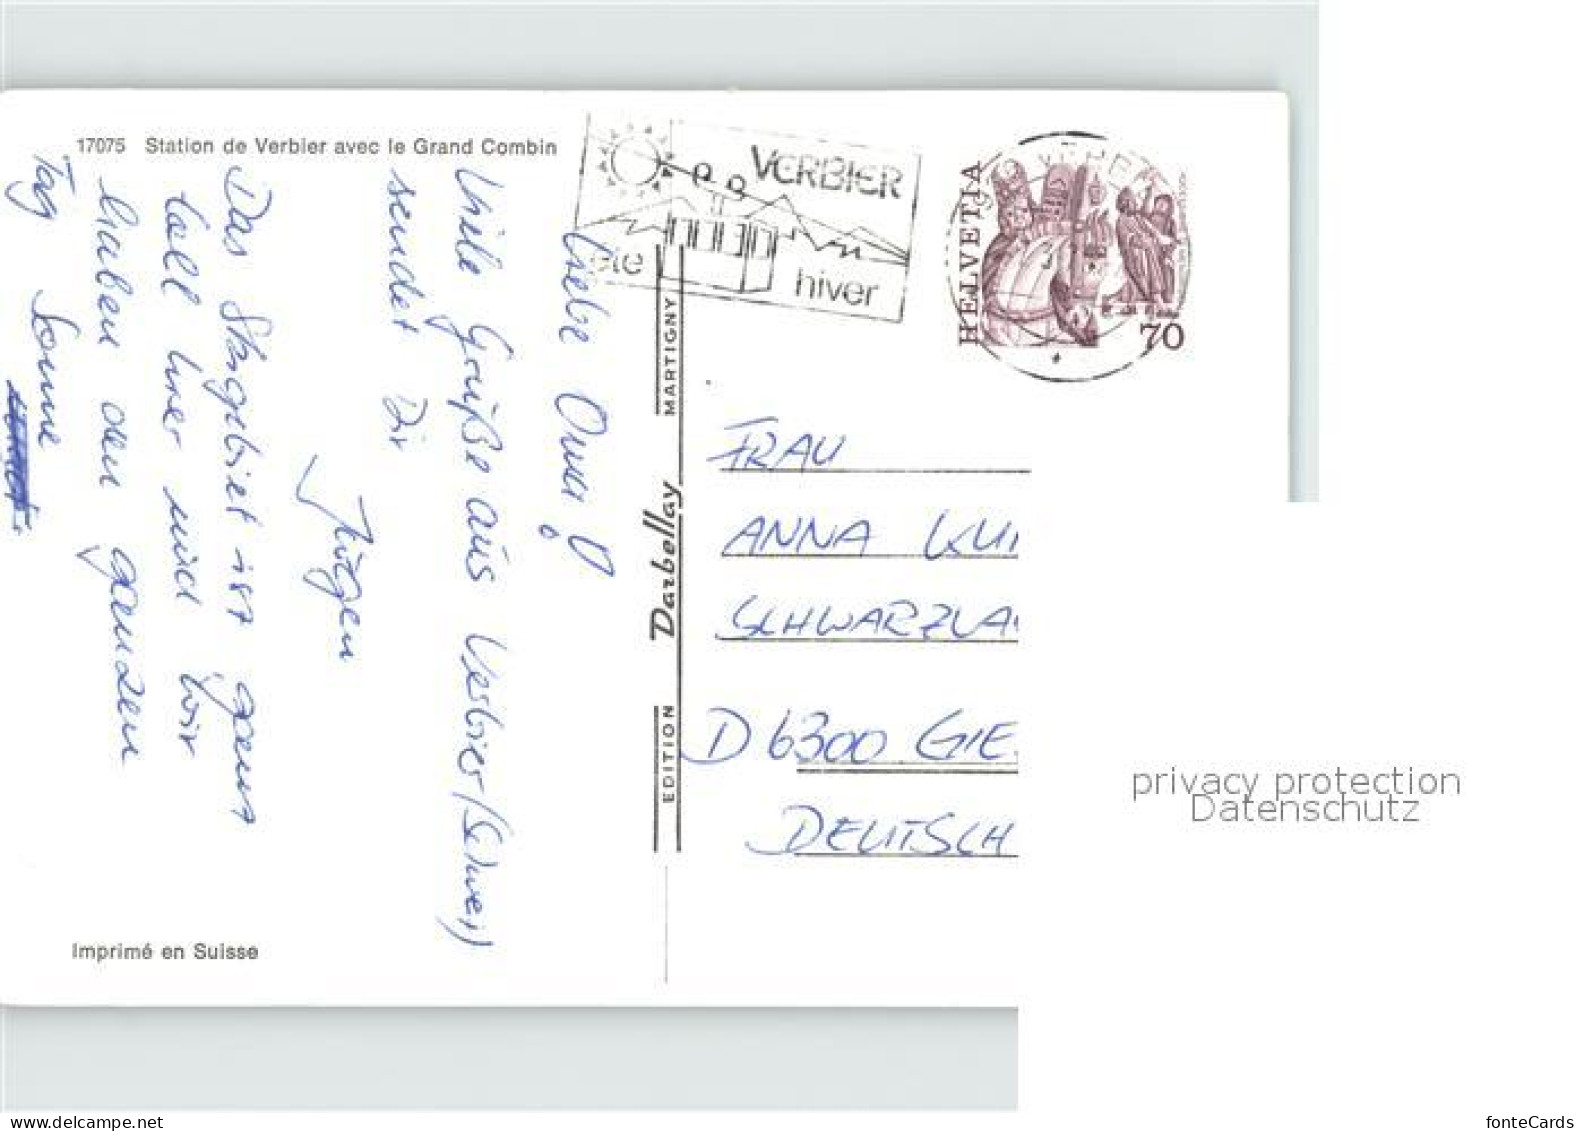 17075 Station de Verbier avec le Grand Combin
Liebe Oma!
Viele Grüße aus Verbier (Schweiz)
sendet Dir
Jürgen
Das Skigebiet ist ganz
toll hier und wir
haben den ganzen
Tag Sonne
VERBIER
été
hiver
HELVETIA
70
EDITION Darbellay MARTIGNY
FRAU
ANNA KU
SCHWARZLA
D 6300 GIE
DEUTSCH
Imprimé en Suisse
privacy protection
Datenschutz
www.delcampe.net
fonteCards